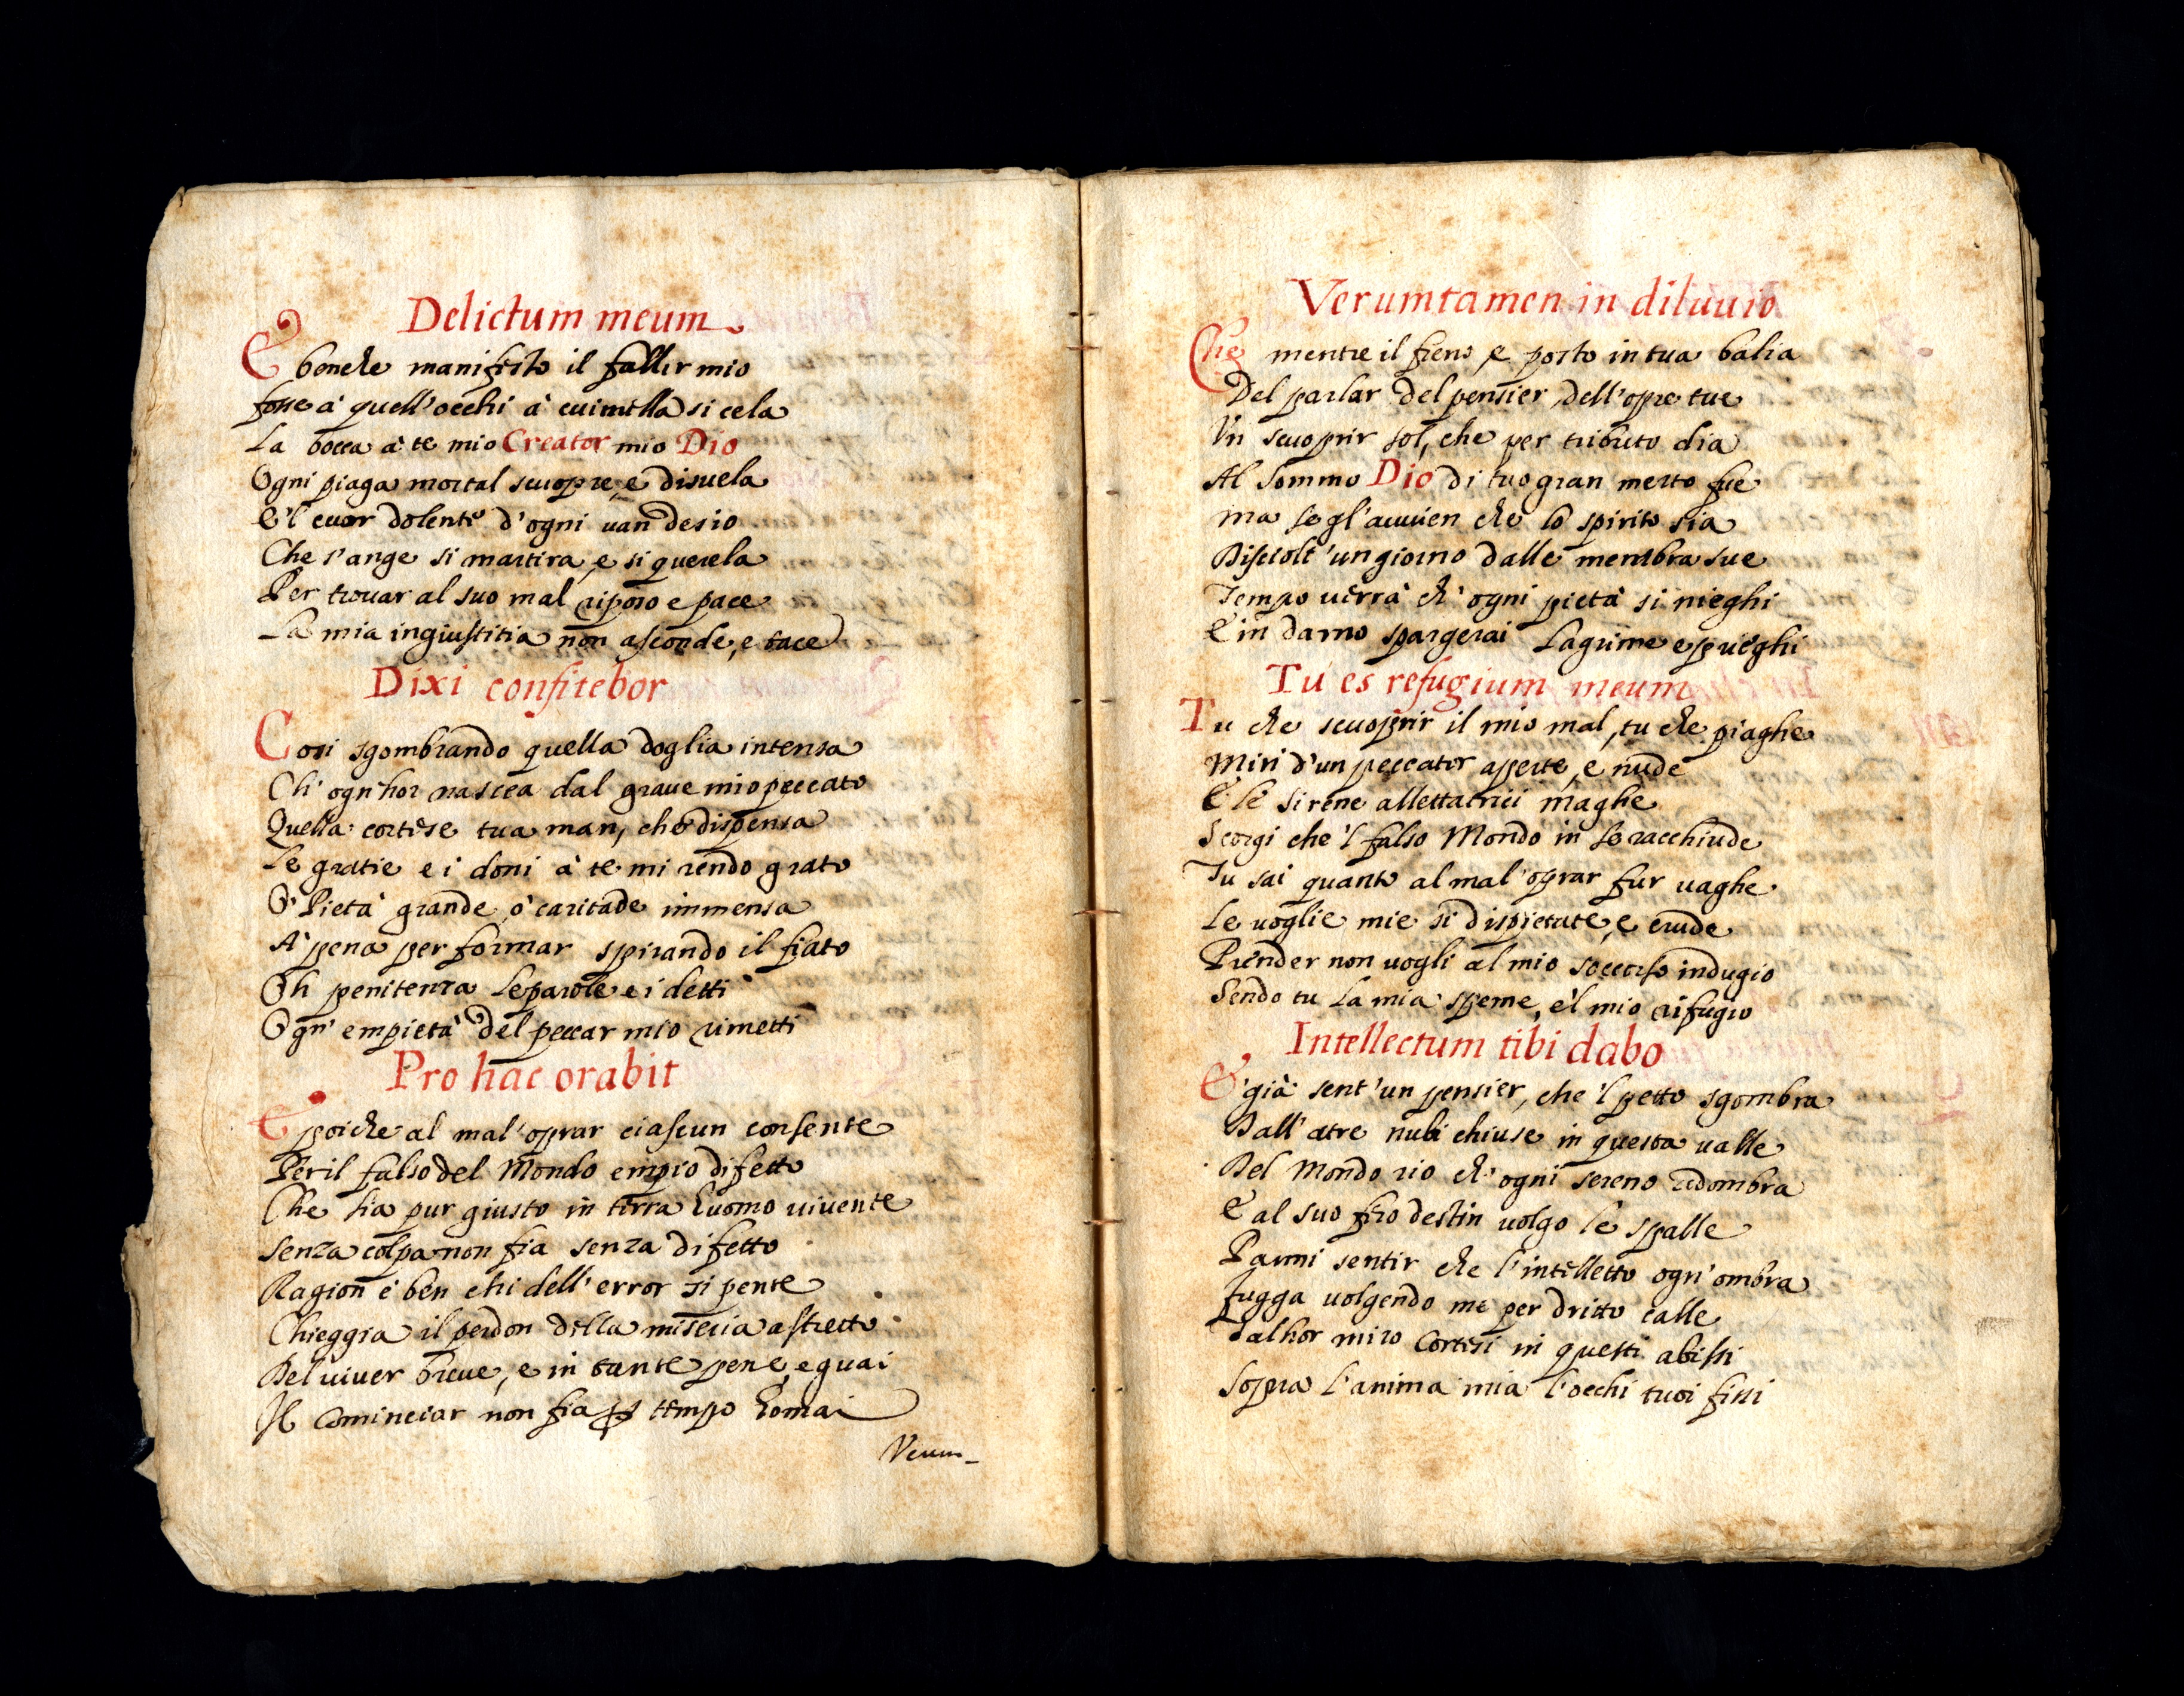 Delictum meum
E benche manifesto il fallir mio
fosse à quell'occhi à cui nulla si cela
La bocca à te mio Creator mio Dio
Ogni piaga mortal scuopre, e disuela
E'l cuor dolente d'ogni uan desio
Che s'ange si martira, e si querela
Per trouar al suo mal riposo e pace
La mia ingiustitia non asconde, e tace
Dixi confitebor
Cosi sgombrando quella doglia intensa
Ch' ogn'hor nascea dal graue mio peccato
Quella cortese tua man, che dispensa
Le gratie e i doni à te mi rendo grato
O' Pietà grande, ò caritade immensa
A' pena per formar spirando il fiato
Di penitenza le parole e i detti
Ogn' empietà del peccar mio rimetti
Pro hac orabit
E poiche al mal'oprar ciascun consente
Per il falso del Mondo empio difetto
Che sia pur giusto in terra huomo uiuente
Senza colpa non fia senza difetto
Ragion è ben chi dell'error si pente
Chieggia il perdon della miseria astretto
Del uiuer breue, e in tante pene, e guai
Il Cominciar non fia p tempo homai
Verum-
Verumtamen in diluuio
Che mentre il freno, e posto in tua balia
Del parlar del pensier, dell'opre tue
Vn scuoprir sol, che per tributo dia
Al Sommo Dio di tuo gran merto fue
ma se gl'auuien che lo spirito sia
Disciolt'un giorno dalle membra sue
Tempo uerrà ch' ogni pietà si nieghi
E in darno spargerai Lagrime e prieghi
Tu es refugium meum
Tu che scuoprir il mio mal, tu che piaghe
Miri d'un peccator aperte, e nude
E le sirene allettatrici maghe
Scorgi che'l falso Mondo in se racchiude
Tu sai quanto al mal'oprar fur uaghe
Le uoglie mie si dispietate, e crude
Prender non uogli al mio soccorso indugio
Sendo tu La mia speme, e'l mio rifugio
Intellectum tibi dabo
E' già sent'un pensier, che'l petto sgombra
Dall'atre nubi chiuse in questa ualle
Del Mondo rio ch' ogni sereno adombra
E al suo fiero destin uolgo le spalle
Parmi sentir che l'intelletto ogn'ombra
fugga uolgendo me per dritto calle
Talhor miro Cortesi in questi abissi
Sopra l'anima mia l'occhi tuoi fissi